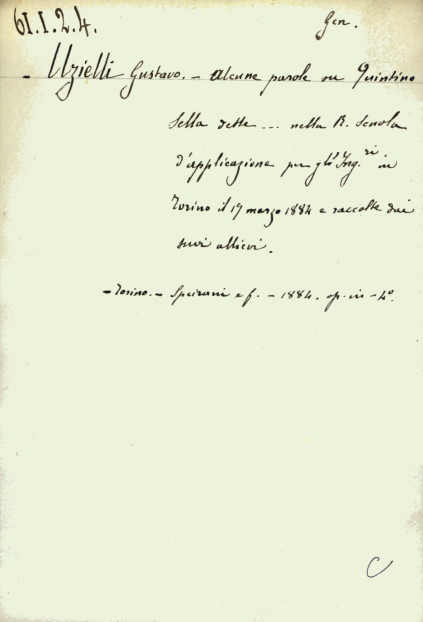 61.1.2.4.
Gen.
- Uzielli Gustavo. - Alcune parole su Quintino
Sella dette ... nella R. Scuola
d'applicazione per gli Ing.ri in
Torino il 17 marzo 1884 e raccolte dai
suoi allievi.
- Torino. - Speirani e f. - 1884. op. in - 4°.
C